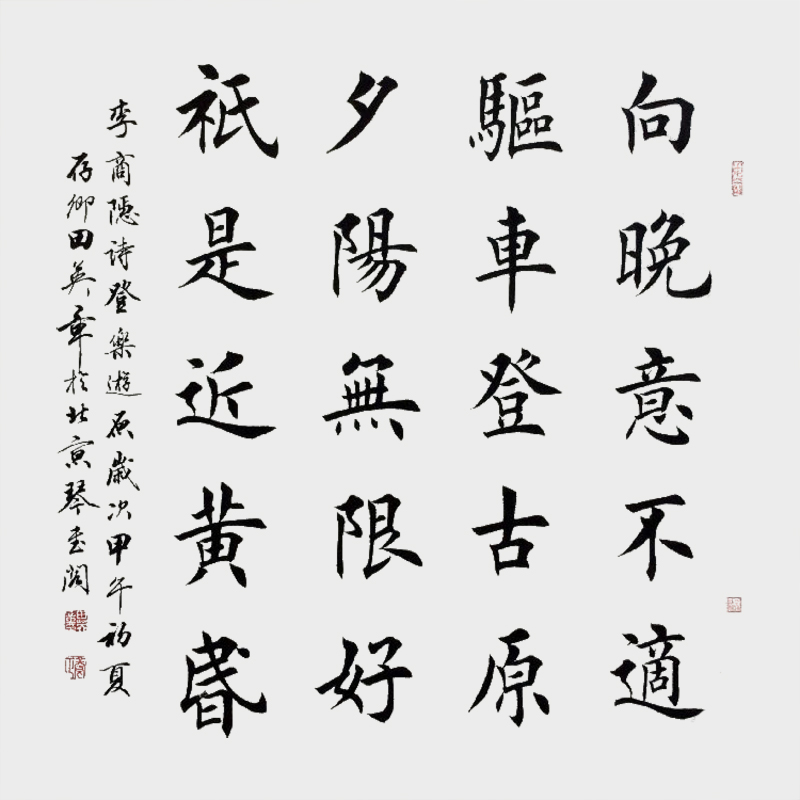 向晚意不適
驅車登古原
夕陽無限好
祇是近黃昬
李商隱詩登樂遊原歲次甲午初夏
存卿田英章於北京琴壺閣